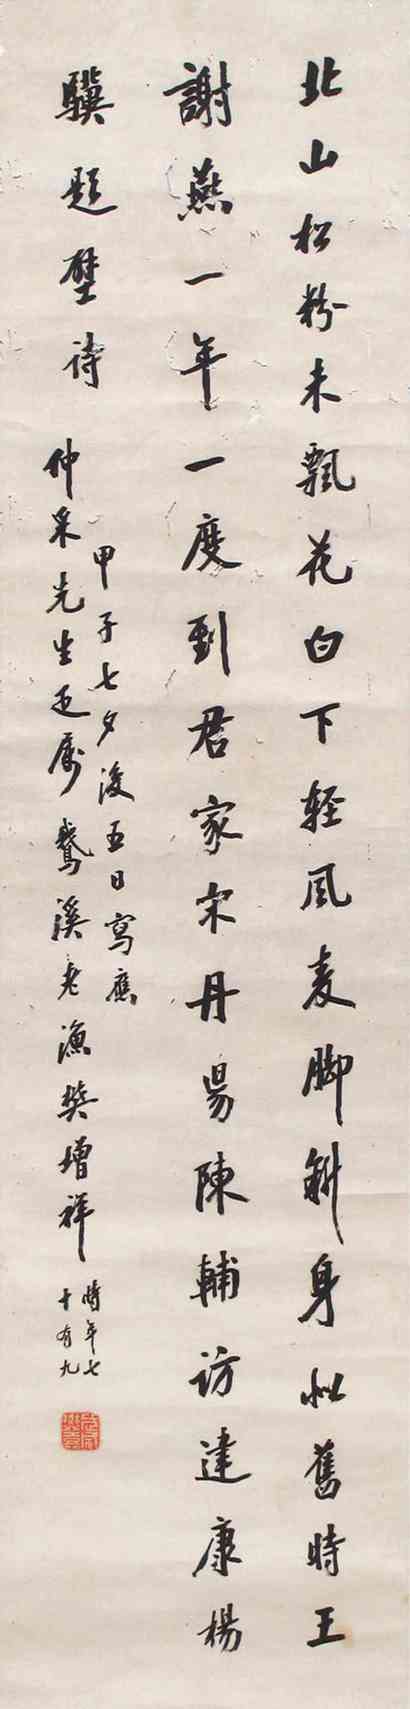 北山松粉未飄花白下輕風麦脚斜身似舊時王
謝燕一年一度到君家宋丹昜陳輔訪建康楊
驥題壁詩
甲子七夕後五日寫應
仲采先生正属鵝溪老漁樊增祥
時年七
十有九